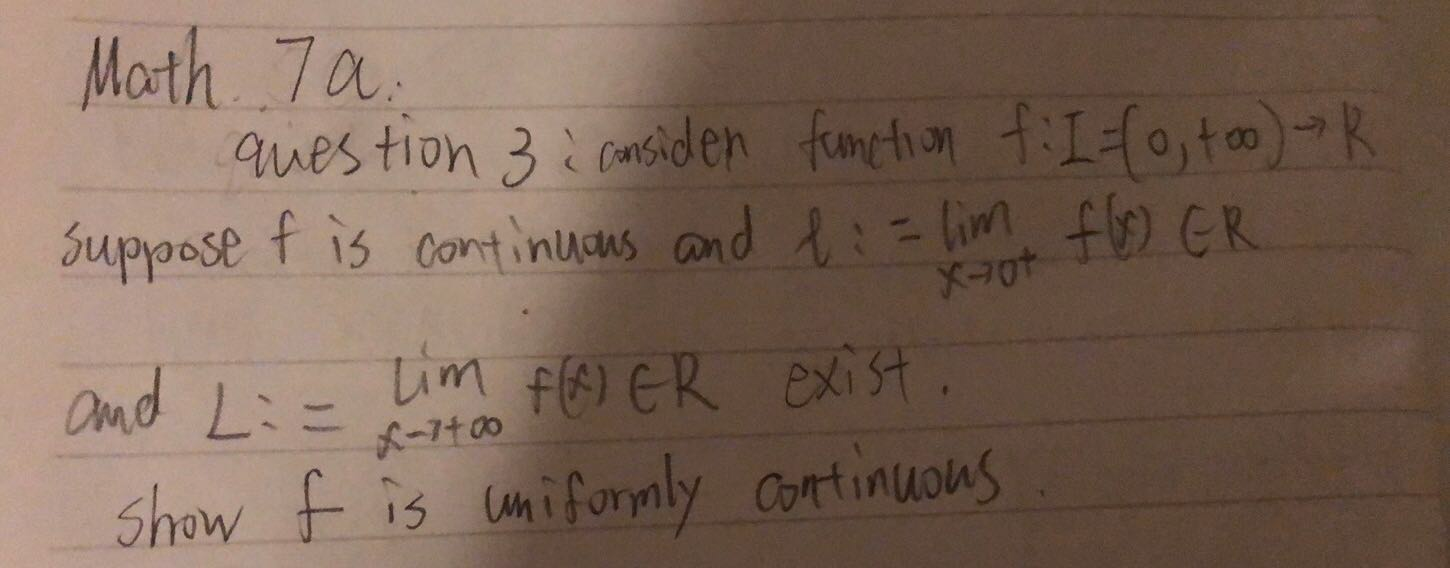 Math 7a.
question 3: consider function f: I=(0,+∞)→R
suppose f is continuous and l := lim f(x) ∈R
x→0+
and L := lim f(x) ∈R exist.
x→+∞
show f is uniformly continuous.